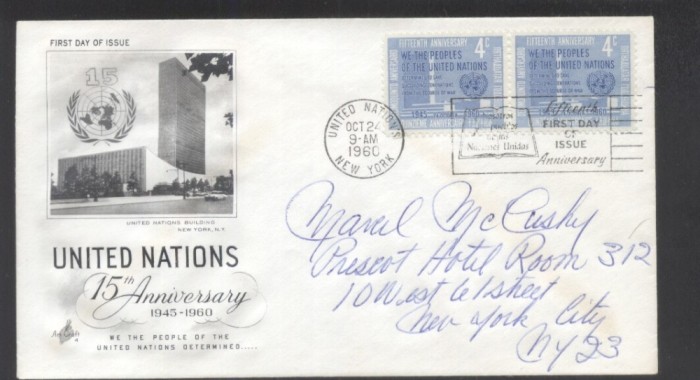 FIRST DAY OF ISSUE
15
UNITED NATIONS BUILDING
NEW YORK, N.Y.
UNITED NATIONS
15th Anniversary
1945-1960
ArtCraft
WE THE PEOPLE OF THE
UNITED NATIONS DETERMINED.....
UNITED NATIONS
OCT 24
9-AM
1960
NEW YORK
FIFTEENTH ANNIVERSARY 4c
WE THE PEOPLES
OF THE UNITED NATIONS
1945
FIFTEENTH ANNIVERSARY 4c
WE THE PEOPLES
OF THE UNITED NATIONS
Naciones Unidas
Fifteenth
FIRST DAY
OF
ISSUE
Anniversary
Marcel McCushy
Prescot Hotel Room 312
10 West 61 street
New York City
NY 23